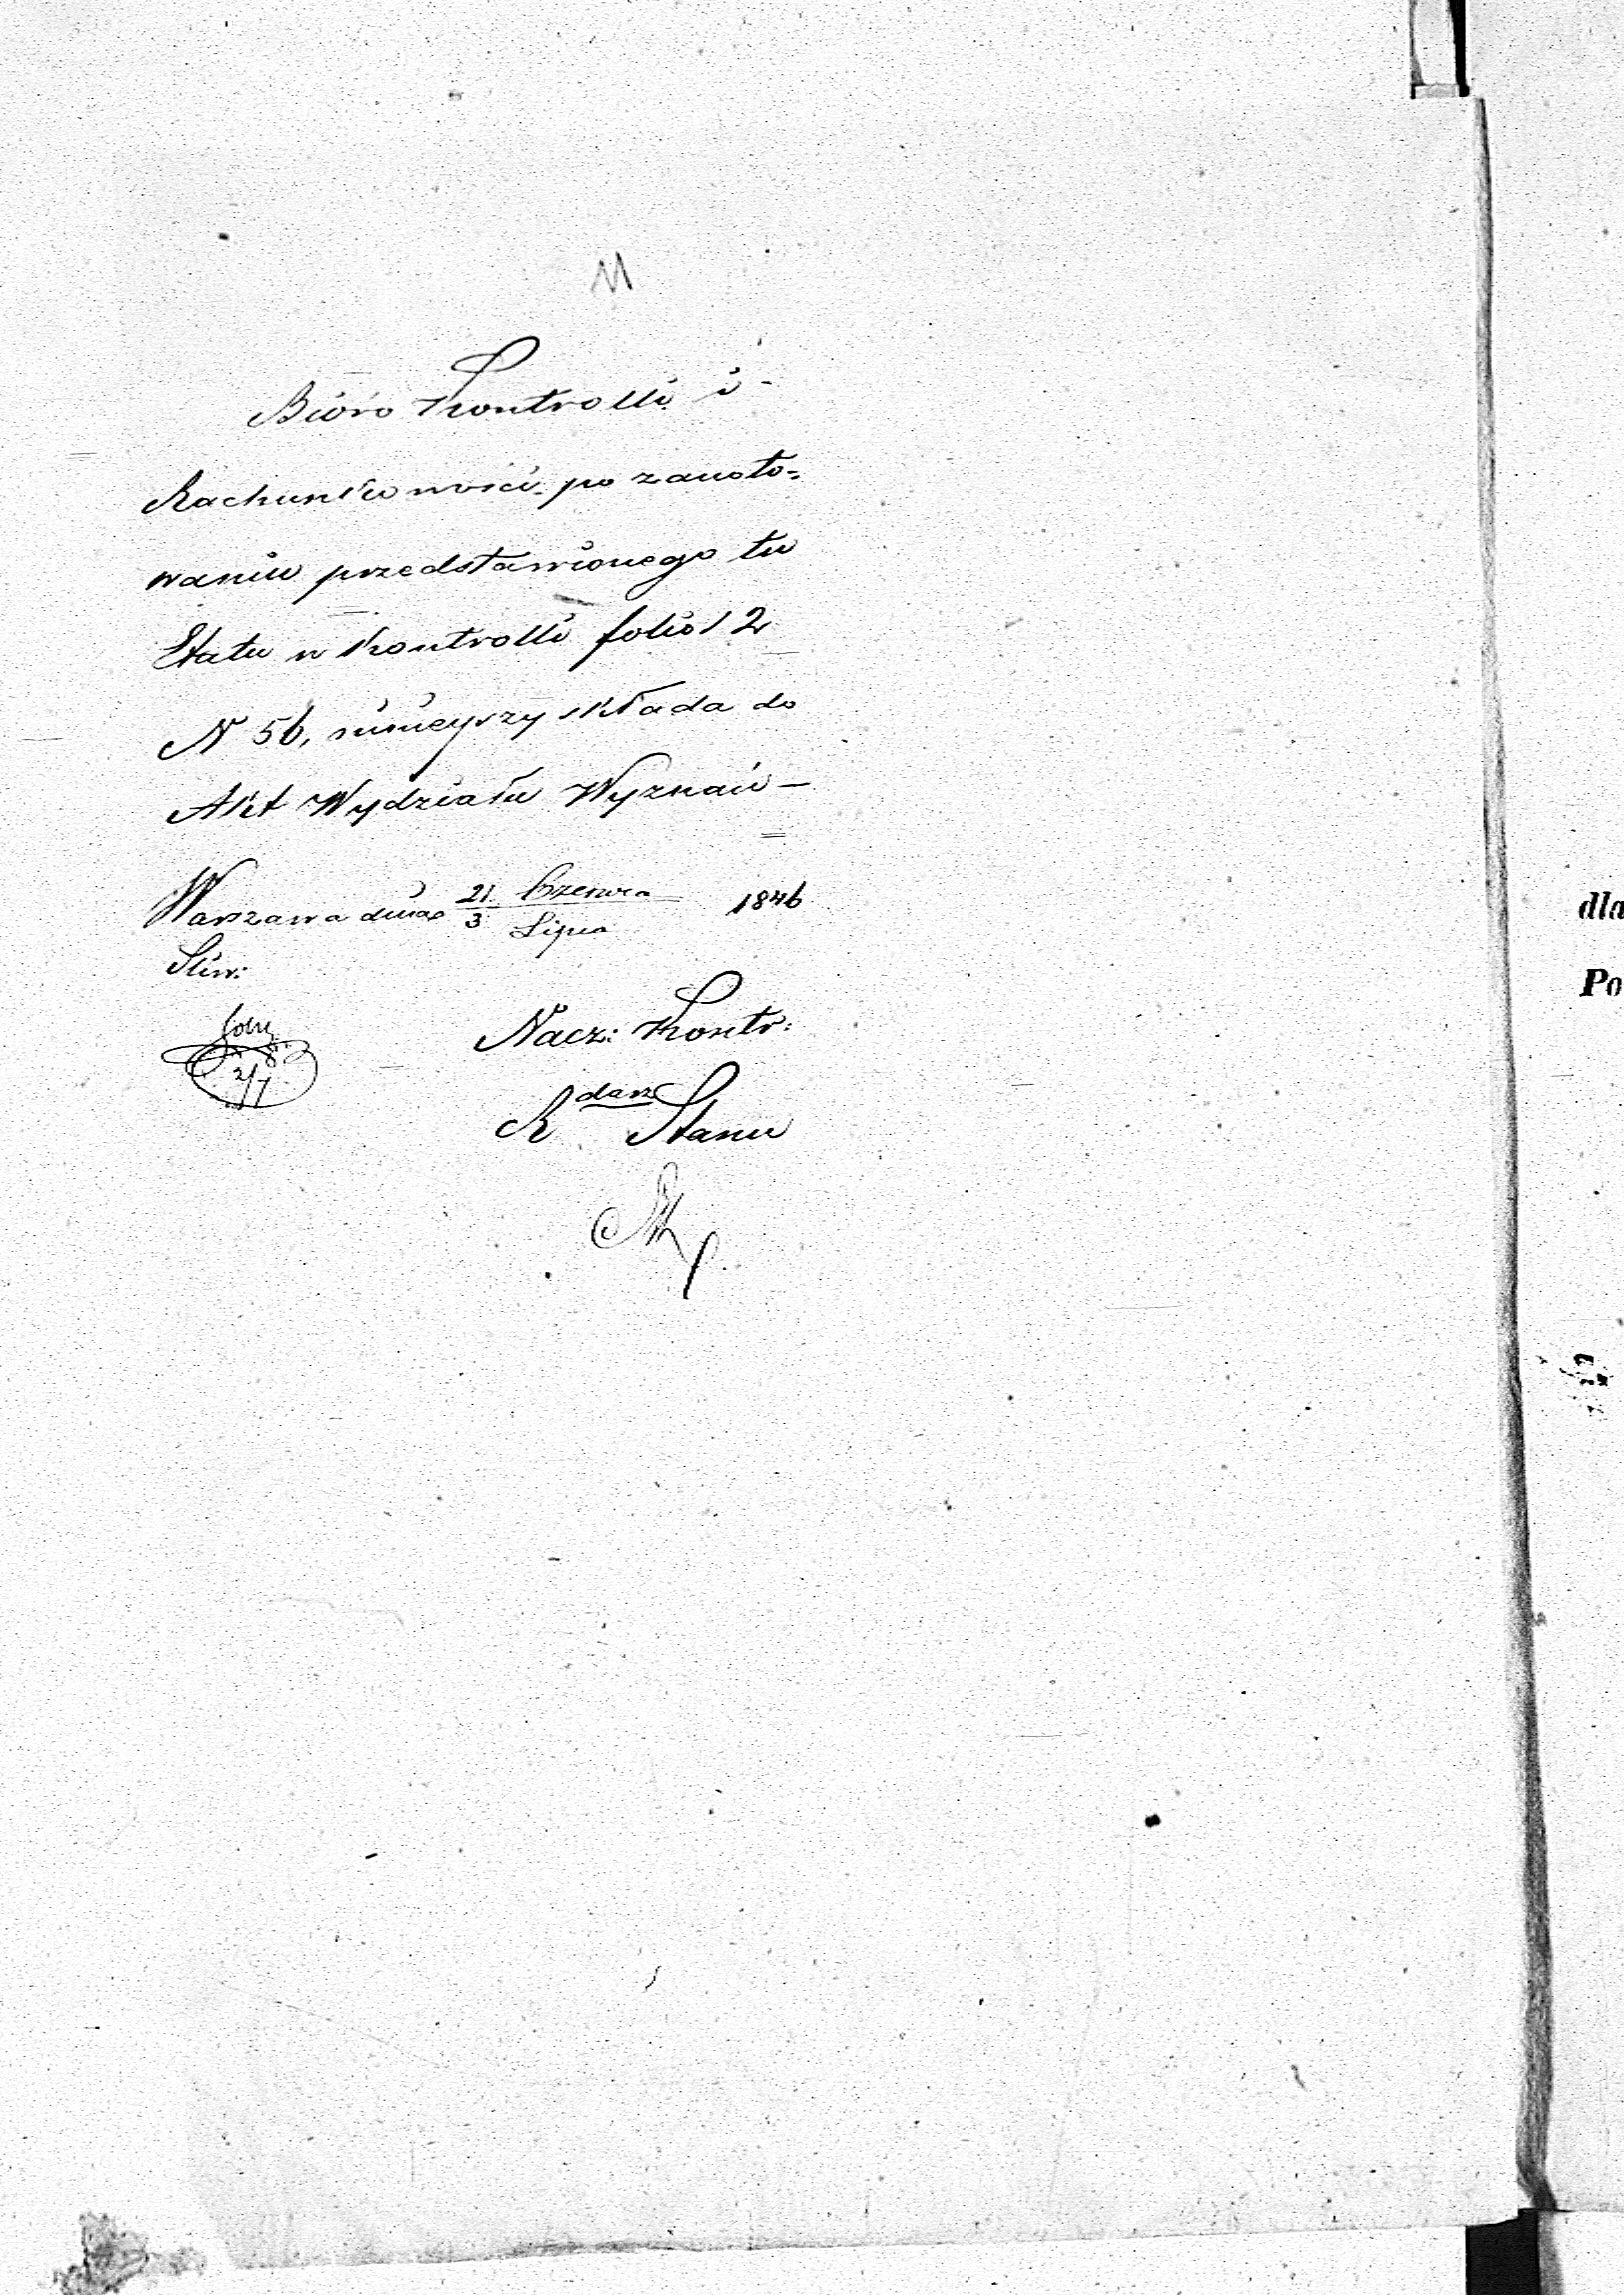 11
Bióro Kontrolli i -
Rachunkowości po zanoto=
waniu przedstawionego tu
Etatu w Kontrolli folio 12
N 56, ninieyszy składa do
Akt Wydziału Wyznań —
Warszawa dnia 21 Czerwca 1846
3 Lipca
Nacz: Kontr:
R darz Stanu
2/7
dla
Po